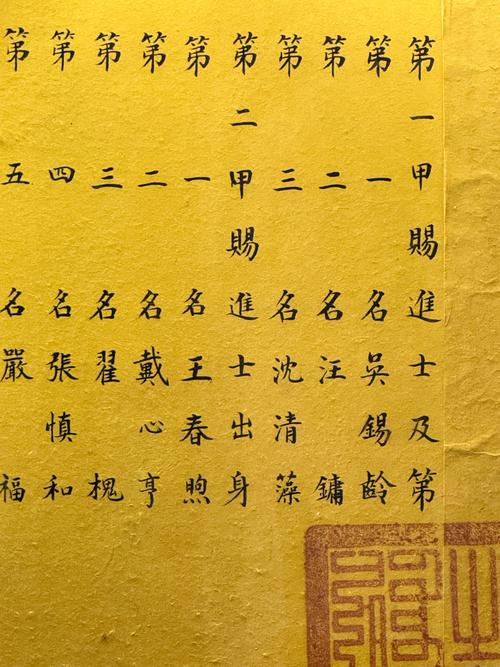 第一甲賜進士及第
第一名吳錫齡
第二名汪鏞
第三名沈清藻
第二甲賜進士出身
第一名王春煦
第二名戴心亨
第三名翟槐
第四名張慎和
第五名嚴福